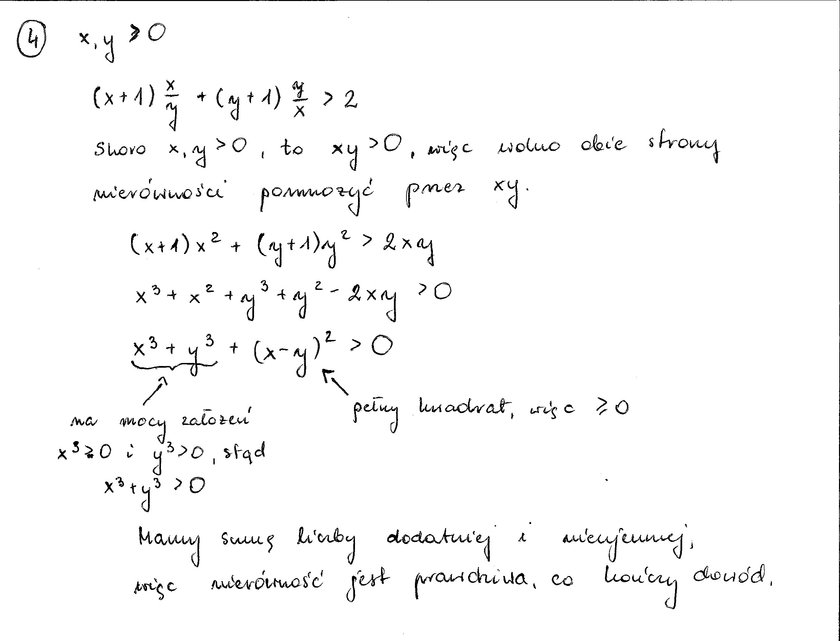 4 x, y > 0
(x+1) x/y + (y+1) y/x > 2
Skoro x, y > 0, to xy > 0, więc wolno obie strony
nierówności pomnożyć przez xy.
(x+1)x² + (y+1)y² > 2xy
x³ + x² + y³ + y² - 2xy > 0
x³ + y³ + (x-y)² > 0
pełny kwadrat, więc ≥ 0
na mocy założeń
x³ > 0 i y³ > 0, stąd
x³ + y³ > 0
Mamy sumę liczby dodatniej i nieujemnej,
więc nierówność jest prawdziwa, co kończy dowód.